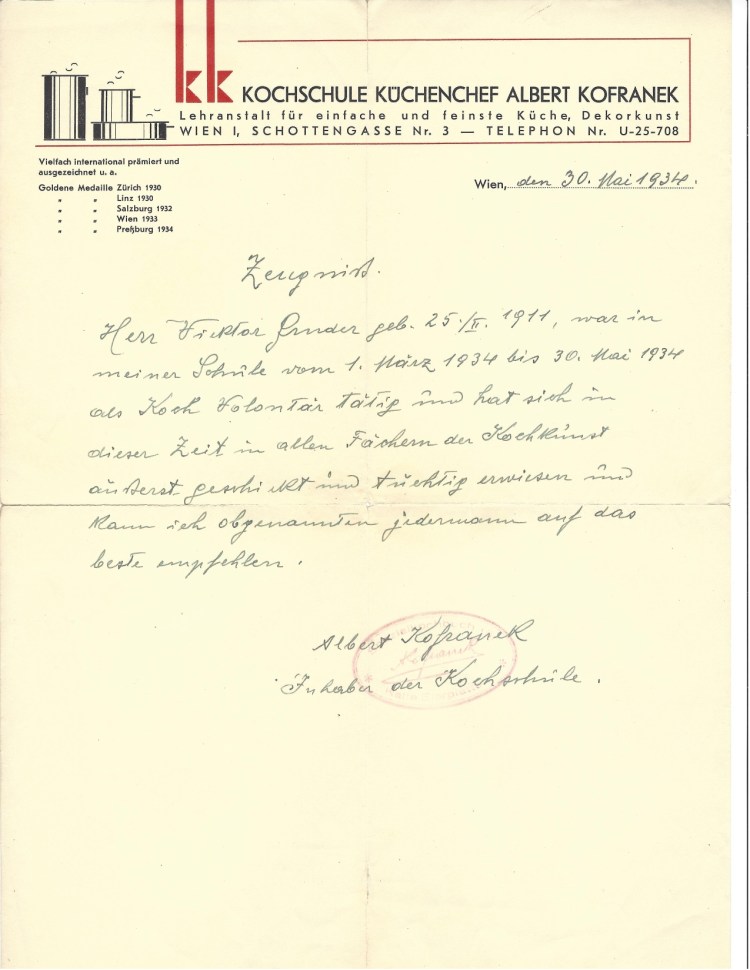 kk KOCHSCHULE KÜCHENCHEF ALBERT KOFRANEK
Lehranstalt für einfache und feinste Küche, Dekorkunst
WIEN I, SCHOTTENGASSE Nr. 3 — TELEPHON Nr. U-25-708
Vielfach international prämiert und
ausgezeichnet u. a.
Goldene Medaille Zürich 1930
" " Linz 1930
" " Salzburg 1932
" " Wien 1933
" " Preßburg 1934
Wien, den 30. Mai 1934.
Zeugniss.
Herr Viktor geb. 25./II. 1911, war in
meiner Schule vom 1. März 1934 bis 30. Mai 1934
als Koch Volontär tätig und hat sich in
dieser Zeit in allen Fächern der Kochkunst
äußerst geschickt und tüchtig erwiesen und
kann ich obgenannten jedermann auf das
beste empfehlen.
Albert Kofranek
Inhaber der Kochschule.